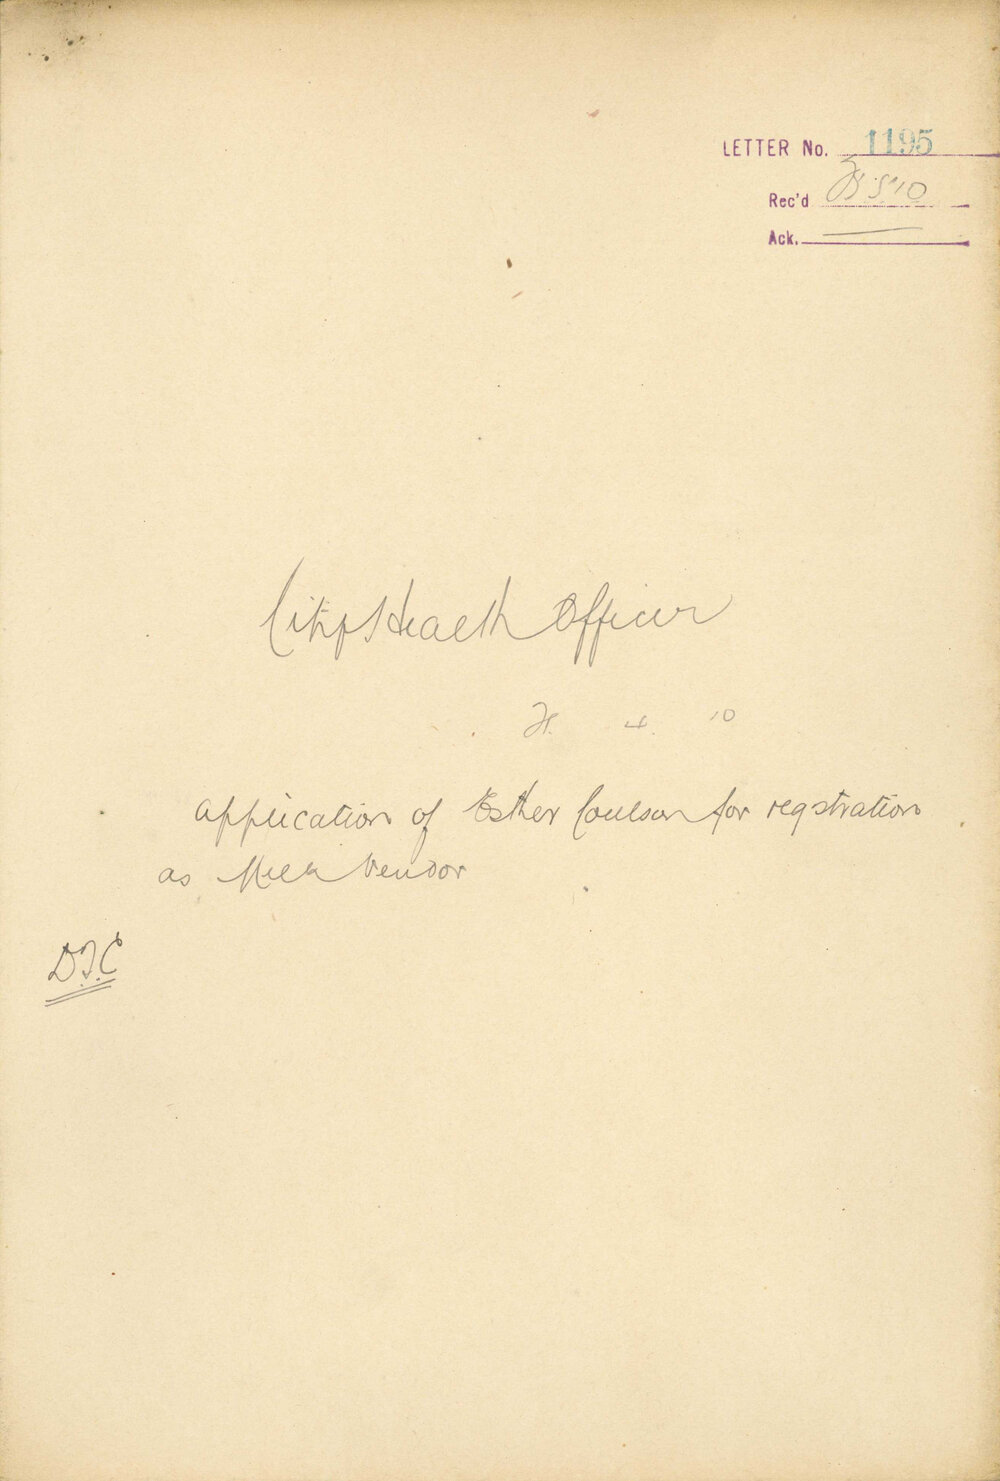 LETTER No. 1195
Rec'd 5 10
Ack.
City Health Officer
4 10
application of Esther Coulson for regstration
as Milk Vendor
D.T.C